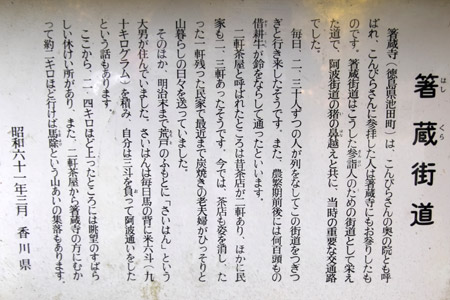 箸蔵街道
はしくら
箸蔵寺(徳島県池田町)は、こんぴらさんの奥の院とも呼
ばれ、こんぴらさんに参拝した人は箸蔵寺にもお参りしたも
のです。箸蔵街道はこうした参詣人のための街道として栄え
た道で、阿波街道の猪の鼻越えと共に、当時の重要な交通路
でした。
毎日、二、三十人ずつの人が列をなしてこの街道をつぎつ
ぎと行き来したそうです。また、農繁期前後には何百頭もの
借耕牛が鈴をならして通ったといいます。
二軒茶屋と呼ばれたところは昔茶店が二軒あり、ほかに民
家も二、三軒あったそうです。今では、茶店も姿を消し、た
った一軒残った民家で最近まで炭焼きの老夫婦がひっそりと
山暮らしの日々を送っていました。
そのほか、明治末まで荒戸のふもとに「さいはん」という
大男が住んでいました。さいはんは毎日馬の背に米六斗(九
十キログラム)を積み、自分は三斗を負って阿波通いをした
という話もあります。
ここから二、四キロほど上ったところには眺望のすばら
しい休けい所があり、また、二軒茶屋から箸蔵寺の方にむか
って約二キロほど行けば馬除という山あいの集落もあります。
昭和六十一年三月 香川県